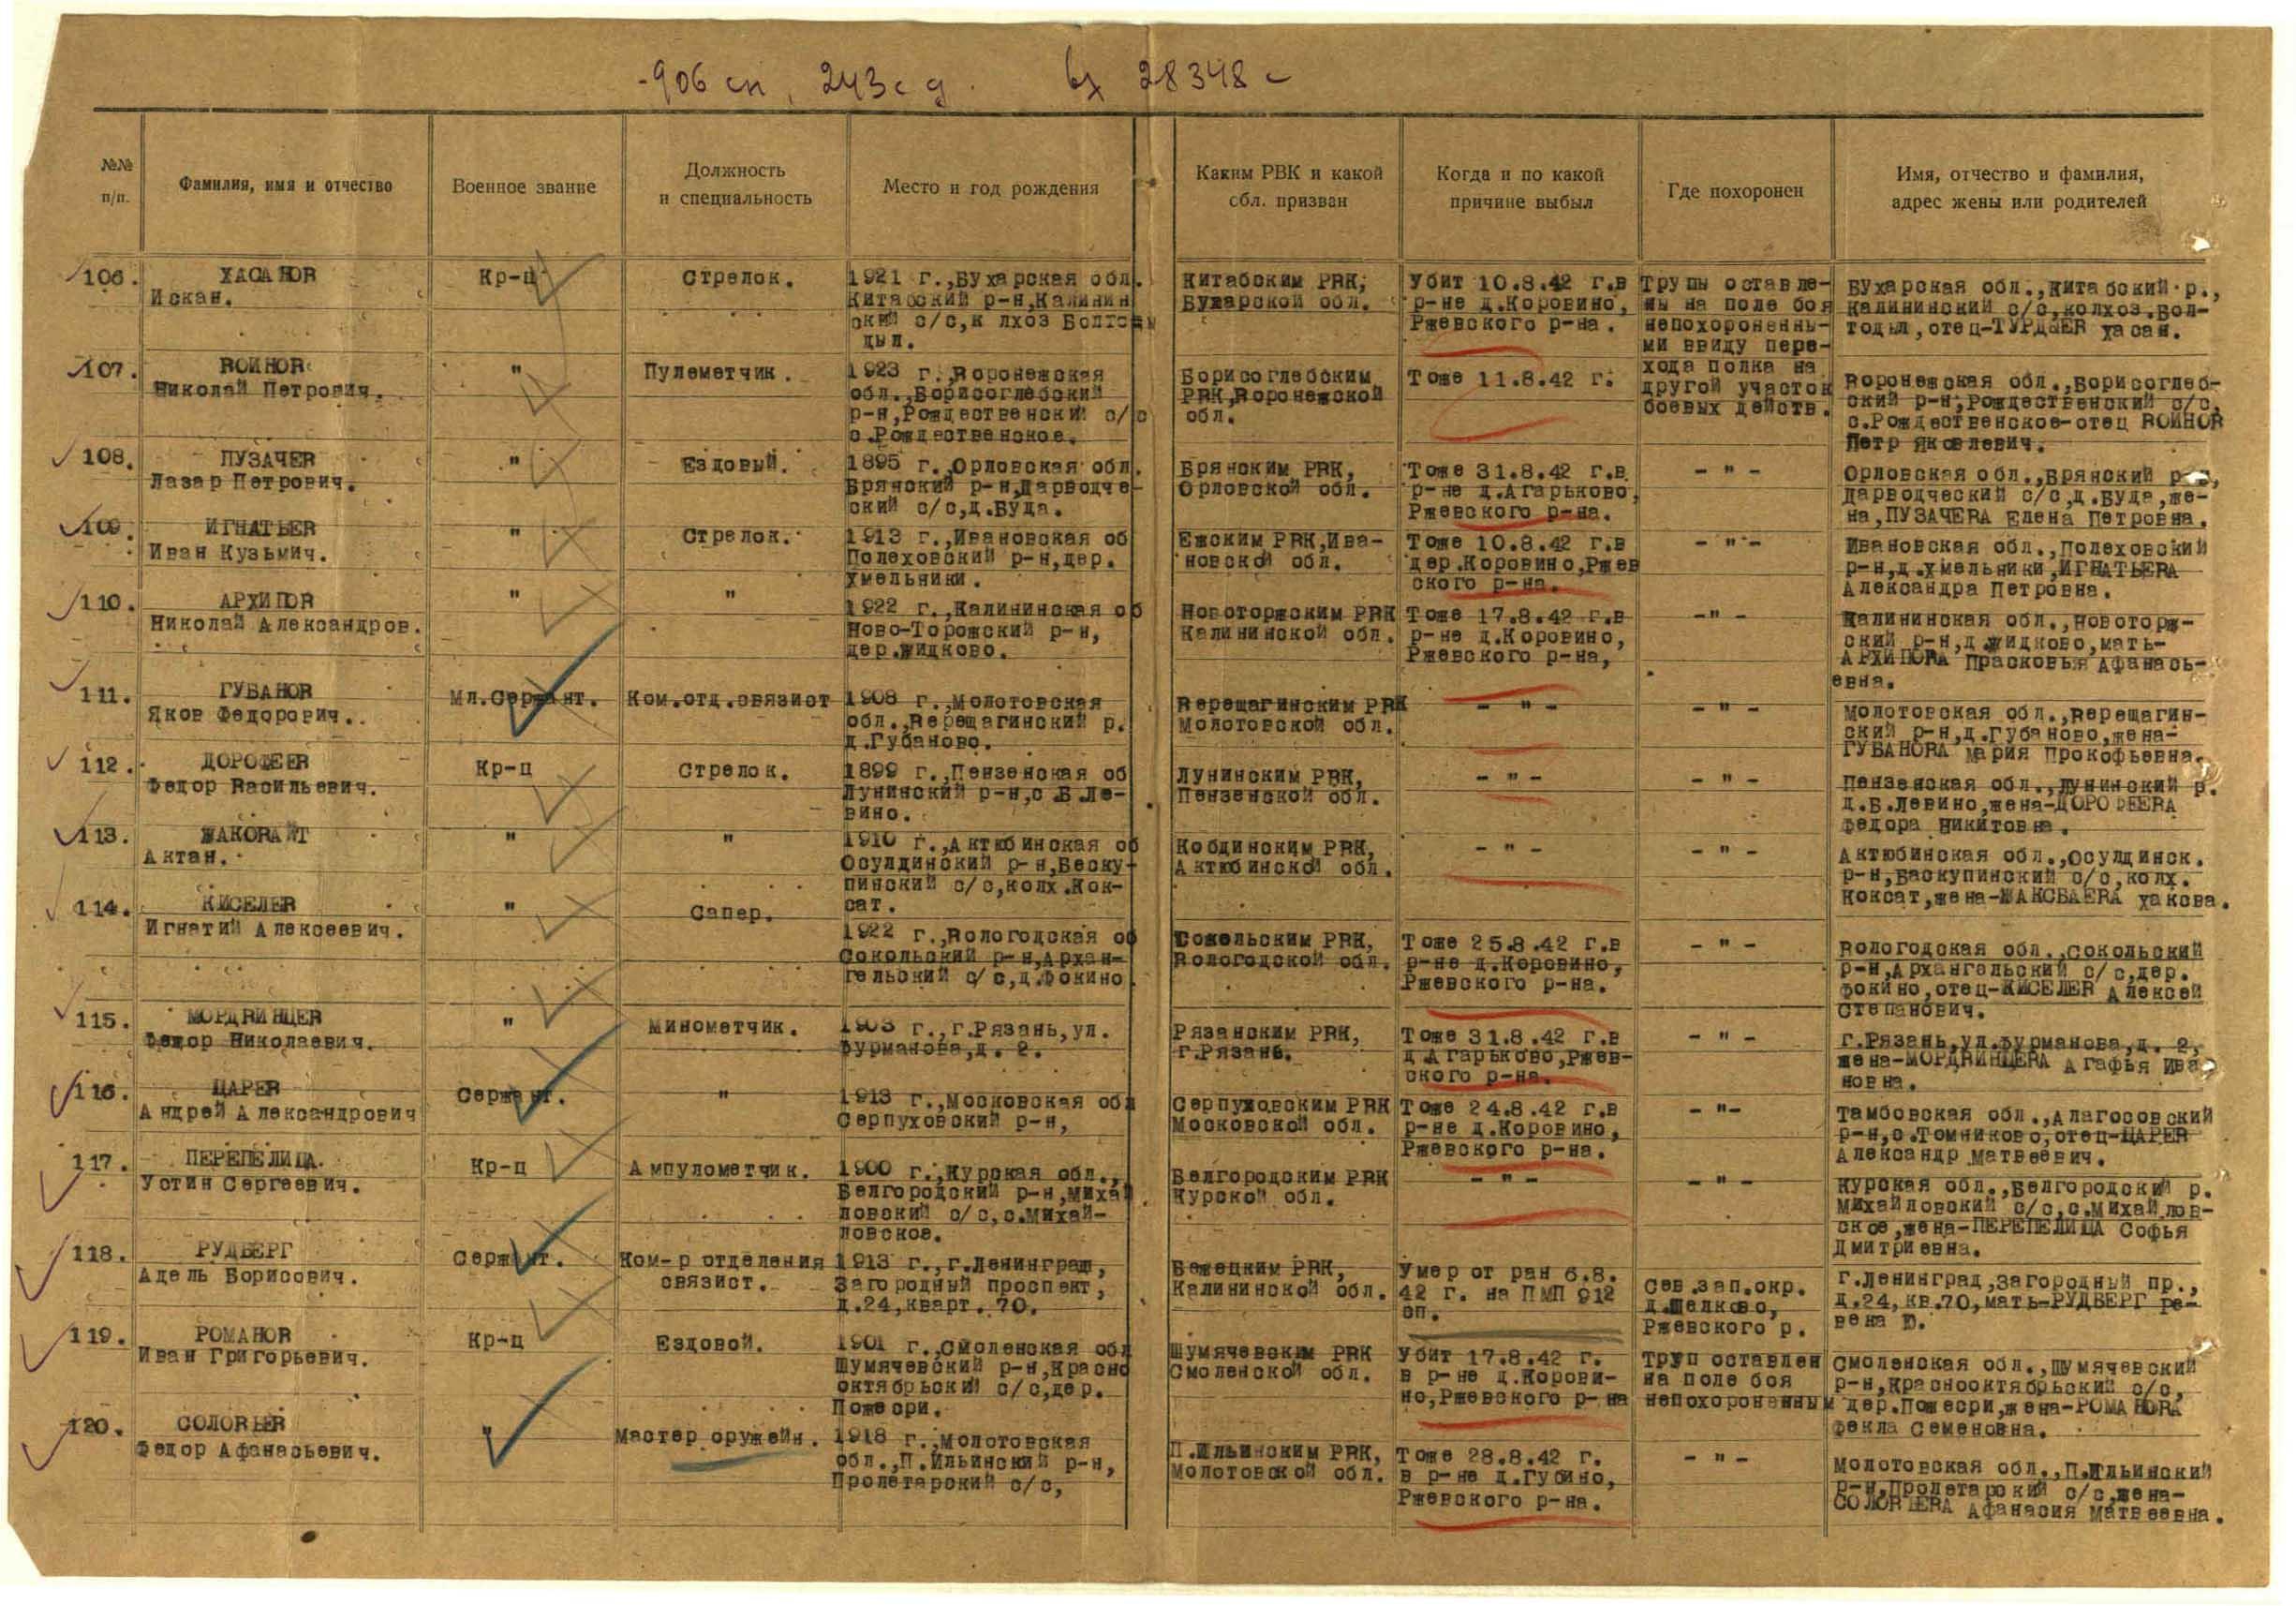 -906 сп, 243 с д. вх 28348 с
№№ п/п.
Фамилия, имя и отчество
Военное звание
Должность и специальность
Место и год рождения
Каким РВК и какой обл. призван
Когда и по какой причине выбыл
Где похоронен
Имя, отчество и фамилия, адрес жены или родителей
106.
ХАСАНОВ
Искан.
Кр-ц
Стрелок.
1921 г.,Бухарская обл.
Китабский р-н,Калинин
ский с/с,к лхоз Болтоды
цыл.
Китабским РВК,
Бухарской обл.
Убит 10.8.42 г.в
р-не д.Коровино,
Ржевского р-на.
Трупы оставле-
ны на поле боя
непохороненны-
ми ввиду пере-
хода полка на
другой участок
боевых действ.
Бухарская обл.,Китабский р.,
Калининский с/с,колхоз.Бол-
тодыл,отец-ТУРДЫЕВ Хасан.
107.
ВОИНОВ
Николай Петрович.
"
Пулеметчик.
1923 г.,Воронежская
обл.,Борисоглебский
р-н,Рождественский с/с
с.Рождественское.
Борисоглебским
РВК,Воронежской
обл.
Тоже 11.8.42 г.
Воронежская обл.,Борисоглеб-
ский р-н,Рождественский с/с,
с.Рождественское-отец ВОИНОВ
Петр Яковлевич.
108.
ПУЗАЧЕВ
Лазар Петрович.
"
Ездовый.
1895 г.,Орловская обл.
Брянский р-н,Дарводче-
ский с/с,д.Буда.
Брянским РВК,
Орловской обл.
Тоже 31.8.42 г.в
р-не д.Агарьково,
Ржевского р-на.
- " -
Орловская обл.,Брянский р-н,
Дарводческий с/с,д.Буда,же-
на,ПУЗАЧЕВА Елена Петровна.
109.
ИГНАТЬЕВ
Иван Кузьмич.
"
Стрелок.
1913 г.,Ивановская об
Полеховский р-н,дер.
Хмельники.
Ежским РВК,Ива-
новской обл.
Тоже 10.8.42 г.в
дер.Коровино,Ржев
ского р-на.
- " -
Ивановская обл.,Полеховский
р-н,д.Хмельники,ИГНАТЬЕВА
Александра Петровна.
110.
АРХИПОВ
Николай Александров.
"
"
1922 г.,Калининская об
Ново-Торожский р-н,
дер.Жидково.
Новоторжским РВК
Калининской обл.
Тоже 17.8.42 г.в
р-не д.Коровино,
Ржевского р-на,
-" -
Калининская обл.,Новоторж-
ский р-н,д.Жидково,мать-
АРХИПОВА Прасковья Афанась-
евна.
111.
ГУБАНОВ
Яков Федорович.
Мл.Сержант.
Ком.отд.связист
1908 г.,Молотовская
обл.,Верещагинский р.
д.Губаново.
Верещагинским РВК
Молотовской обл.
- " -
- " -
Молотовская обл.,Верещагин-
ский р-н,д.Губаново,жена-
ГУБАНОВА Мария Прокофьевна.
112.
ДОРОФЕЕВ
Федор Васильевич.
Кр-ц
Стрелок.
1899 г.,Пензенская об
Лунинский р-н,с.Б.Ле-
вино.
Лунинским РВК,
Пензенской обл.
- " -
- " -
Пензенская обл.,Лунинский р.
д.Б.Левино,жена-ДОРОФЕЕВА
Федора Никитовна.
113.
ЖАКОВАЙТ
Актан.
"
"
1910 г.,Актюбинская об
Осулдинский р-н,Беску-
пинский с/с,колх.Кок-
сат.
Кобдинским РВК,
Актюбинской обл.
- " -
- " -
Актюбинская обл.,Осулдинск.
р-н,Баскупинский с/с,колх.
Коксат,жена-ЖАКСБАЕВА Хакова.
114.
КИСЕЛЕВ
Игнатий Алексеевич.
"
Сапер.
1922 г.,Вологодская об
Сокольский р-н,Архан-
гельский с/с,д.Фокино
Сокольским РВК,
Вологодской обл.
Тоже 25.8.42 г.в
р-не д.Коровино,
Ржевского р-на.
- " -
Вологодская обл.,Сокольский
р-н,Архангельский с/с,дер.
Фокино,отец-КИСЕЛЕВ Алексей
Степанович.
115.
МОРДВИНЦЕВ
Федор Николаевич.
"
Минометчик.
1903 г.,г.Рязань,ул.
Фурманова,д. 2.
Рязанским РВК,
г.Рязань.
Тоже 31.8.42 г.в
д Агарьково,Ржев-
ского р-на.
- " -
г.Рязань,ул.Фурманова,д. 2,
жена-МОРДВИНЦЕВА Агафья Ива
новна.
116.
ЦАРЕВ
Андрей Александрович
Сержант.
"
1913 г.,Московская обл
Серпуховский р-н,
Серпуховским РВК
Московской обл.
Тоже 24.8.42 г.в
р-не д.Коровино,
Ржевского р-на.
- "-
Тамбовская обл.,Алагосовский
р-н,с.Томниково,отец-ЦАРЕВ
Александр Матвеевич.
117.
ПЕРЕПЕЛИЦА.
Устин Сергеевич.
Кр-ц
Ампулометчик.
1900 г.,Курская обл.,
Белгородский р-н,Михай
ловский с/с,с.Михай-
ловское.
Белгородским РВК
Курской обл.
- " -
- " -
Курская обл.,Белгородский р.
Михайловский с/с,с.Михайлов-
ское,жена-ПЕРЕПЕЛИЦА Софья
Дмитриевна.
118.
РУДБЕРГ
Адель Борисович.
Сержант.
Ком-р отделения
связист.
1913 г.,г.Ленинград,
Загородный проспект,
д.24,кварт. 70.
Бежецким РВК,
Калининской обл.
Умер от ран 6.8.
42 г. на ПМП 912
сп.
Сев.зап.окр.
д.Щелково,
Ржевского р.
г.Ленинград,Загородный пр.,
д.24,кв.70,мать-РУДБЕРГ Ре-
вена Ю.
119.
РОМАНОВ
Иван Григорьевич.
Кр-ц
Ездовой.
1901 г.,Смоленская обл
Шумячевский р-н,Красно
октябрьский с/с,дер.
Пожесри.
Шумячевским РВК
Смоленской обл.
Убит 17.8.42 г.
в р-не д.Корови-
но,Ржевского р-на
Труп оставлен
на поле боя
непохороненным
Смоленская обл.,Шумячевский
р-н,Краснооктябрьский с/с,
дер.Пожесри,жена-РОМАНОВА
Фекла Семеновна.
120.
СОЛОВЬЕВ
Федор Афанасьевич.
"
Мастер оружейн.
1918 г.,Молотовская
обл.,П.Ильинский р-н,
Пролетарский с/с,
П.Ильинским РВК,
Молотовской обл.
Тоже 28.8.42 г.
в р-не д.Губино,
Ржевского р-на.
- " -
Молотовская обл.,П.Ильинский
р-н,Пролетарский с/с,жена-
СОЛОВЬЕВА Афанасия Матвеевна.